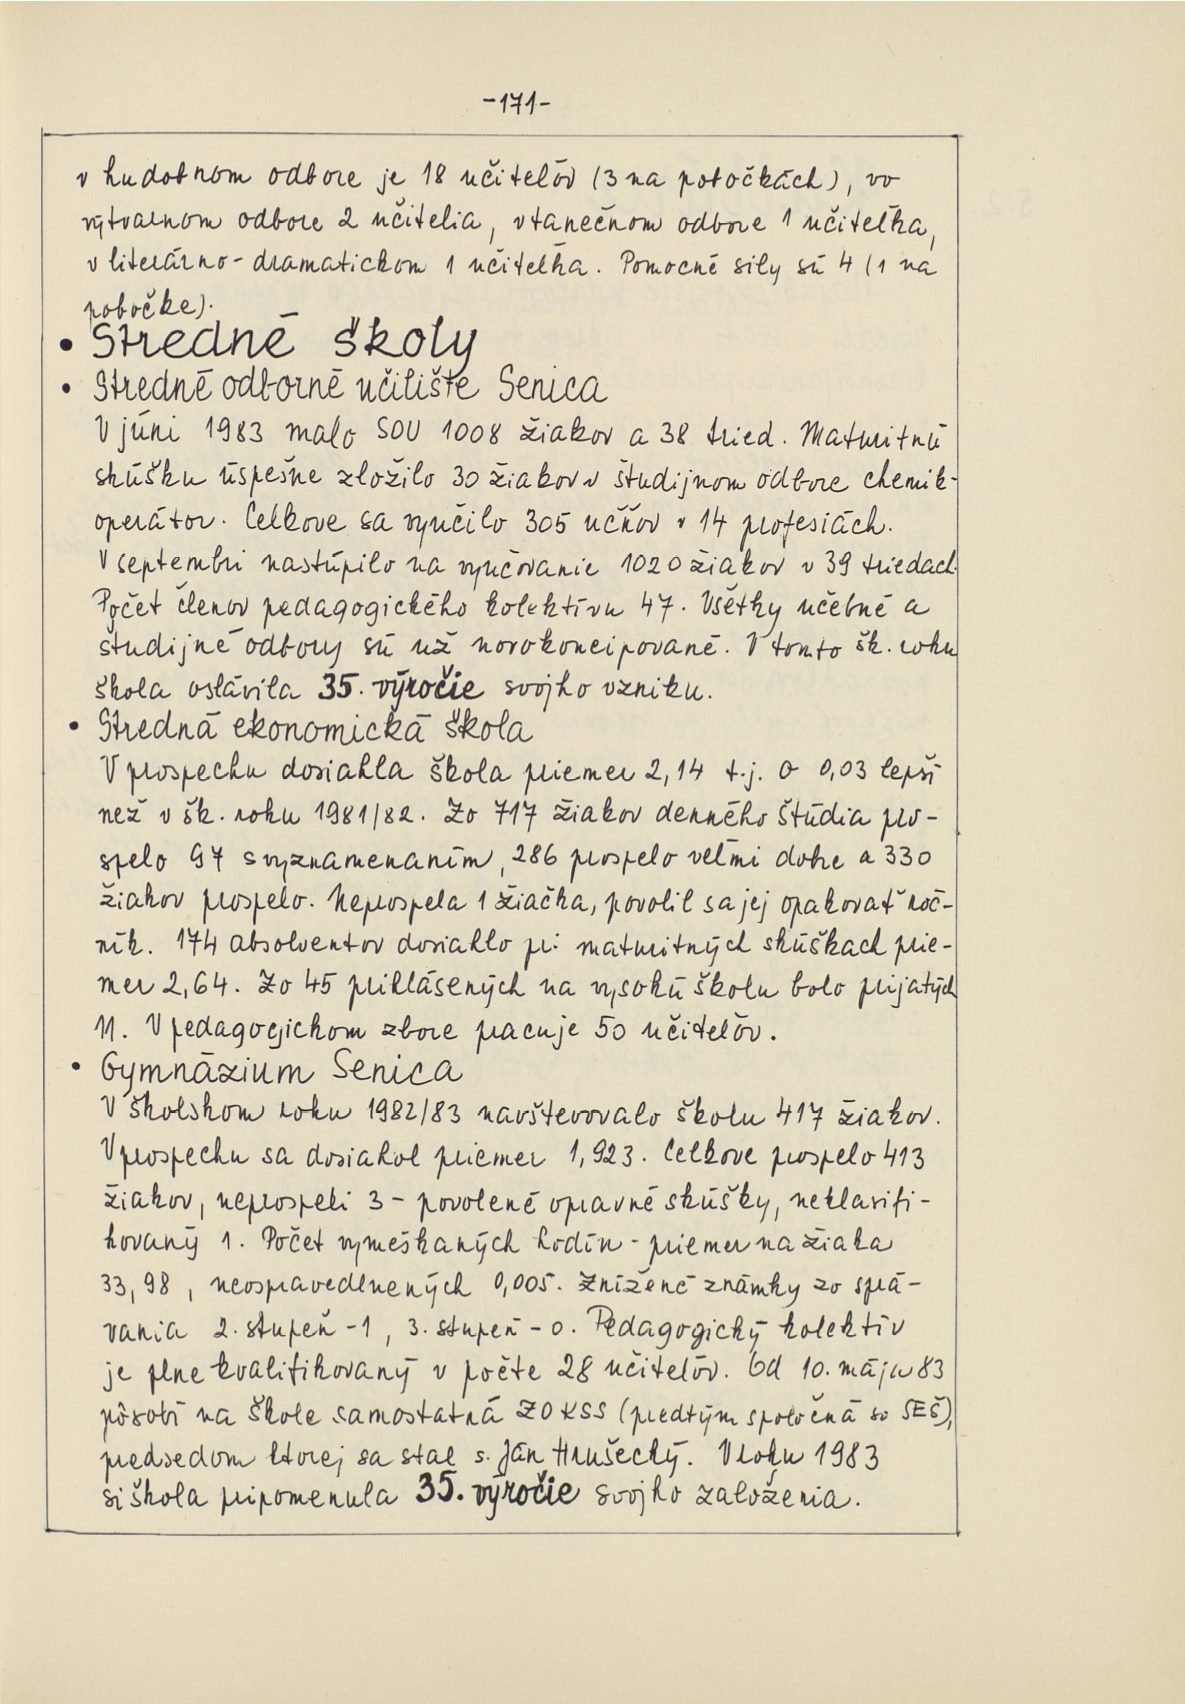 -171-
v hudobnom odbore je 18 učiteľov (3 na pobočkách), vo
výtvarnom odbore 2 učitelia, v tanečnom odbore 1 učiteľka,
v literárno-dramatickom 1 učiteľka. Pomocné sily sú 4 (1 na
pobočke).
• Stredné školy
• Stredné odborné učilište Senica
V júni 1983 malo SOU 1008 žiakov a 38 tried. Maturitnú
skúšku úspešne zložilo 30 žiakov v študijnom odbore chemik-
operátor. Celkove sa vyučilo 305 učňov v 14 profesiách.
V septembri nastúpilo na vyučovanie 1020 žiakov v 39 triedach.
Počet členov pedagogického kolektívu 47. Všetky učebné a
študijné odbory sú už novokoncipované. V tomto šk. roku
škola oslávila 35. výročie svojho vzniku.
• Stredná ekonomická škola
V prospechu dosiahla škola priemer 2,14 t.j. o 0,03 lepší
než v šk. roku 1981/82. Zo 717 žiakov denného štúdia pro-
spelo 97 s vyznamenaním, 286 prospelo veľmi dobre a 330
žiakov prospelo. Neprospela 1 žiačka, povolil sa jej opakovať roč-
ník. 174 absolventov dosiahlo pri maturitných skúškach prie-
mer 2,64. Zo 45 prihlásených na vysokú školu bolo prijatých
11. V pedagogickom zbore pracuje 50 učiteľov.
• Gymnázium Senica
V školskom roku 1982/83 navštevovalo školu 417 žiakov.
V prospechu sa dosiahol priemer 1,923. Celkove prospelo 413
žiakov, neprospeli 3 - povolené opravné skúšky, neklasifi-
kovaný 1. Počet vymeškaných hodín - priemer na žiaka
33,98, neospravedlnených 0,005. Znížené známky zo sprá-
vania 2. stupeň - 1, 3. stupeň - 0. Pedagogický kolektív
je plne kvalifikovaný v počte 28 učiteľov. Od 10. mája 83
pôsobí na škole samostatná ZO KSS (predtým spoločná so SEŠ),
predsedom ktorej sa stal s. Ján Hrušecký. V roku 1983
si škola pripomenula 35. výročie svojho založenia.